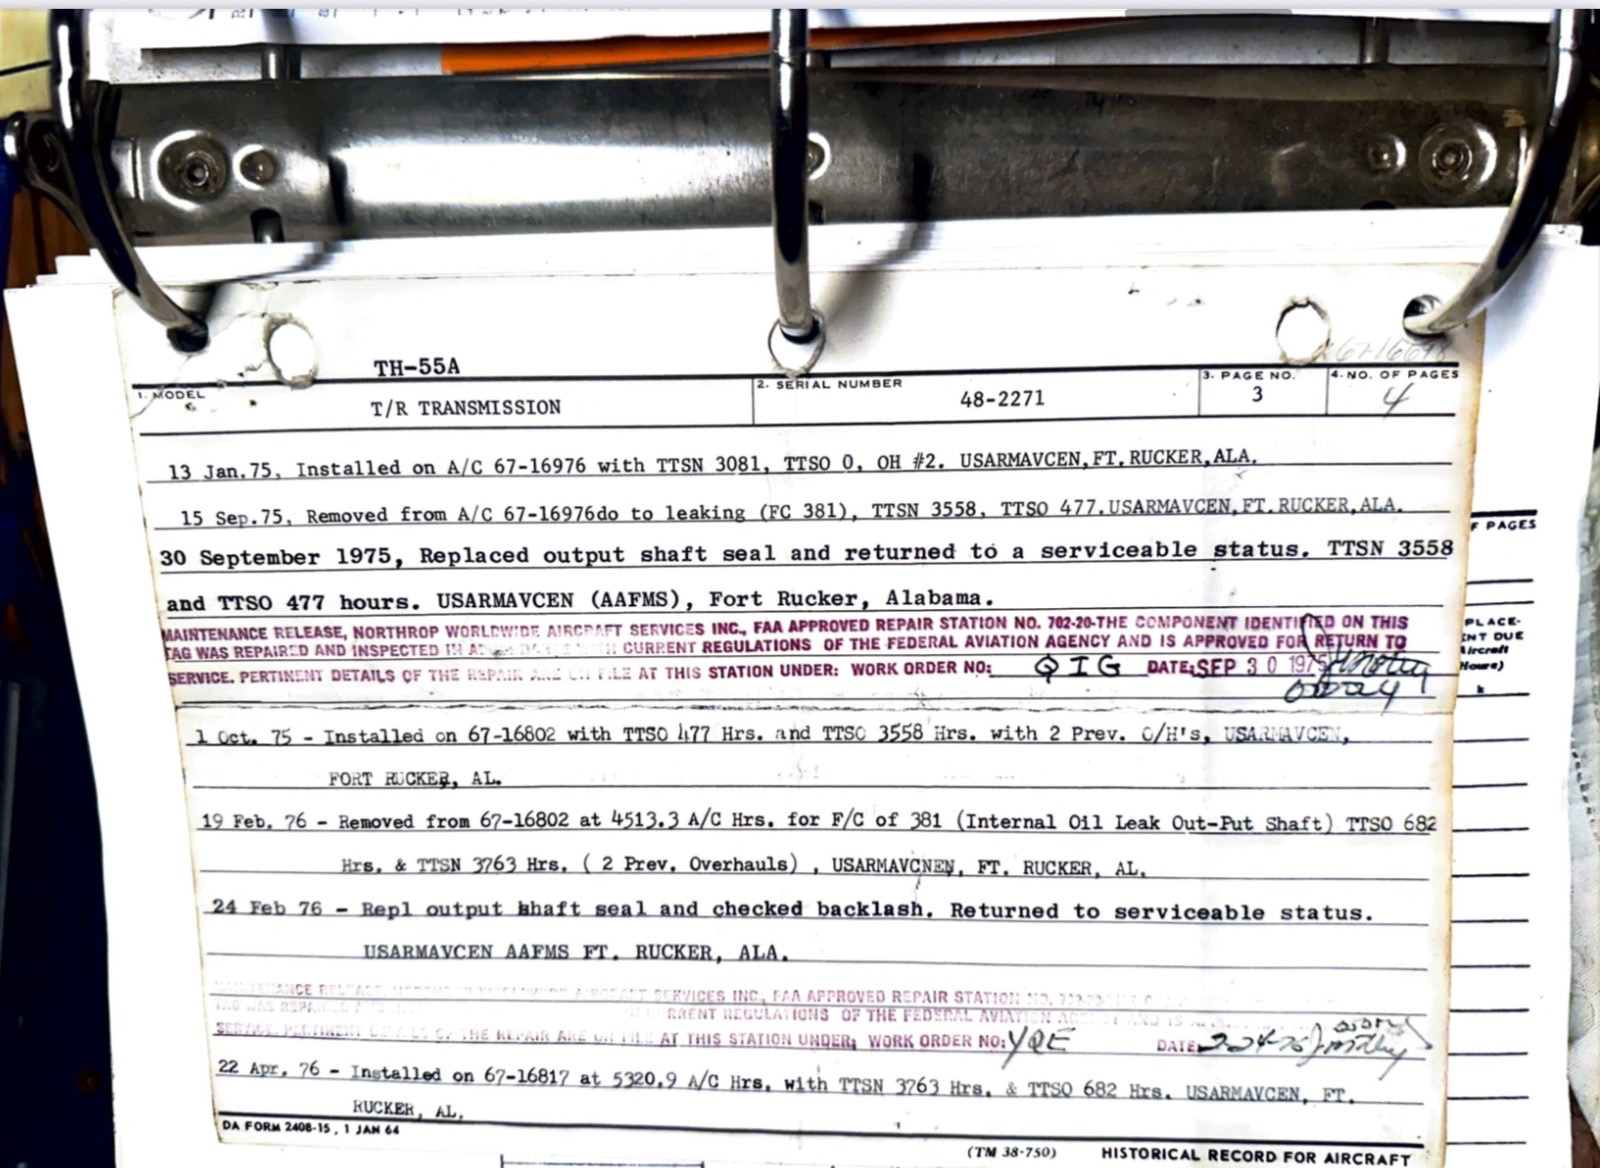 TH-55A
1. MODEL
T/R TRANSMISSION
2. SERIAL NUMBER
48-2271
3. PAGE NO.
3
4. NO. OF PAGES
4
13 Jan.75, Installed on A/C 67-16976 with TTSN 3081, TTSO 0, OH #2. USARMAVCEN,FT.RUCKER,ALA.
15 Sep.75, Removed from A/C 67-16976do to leaking (FC 381), TTSN 3558, TTSO 477.USARMAVCEN,FT.RUCKER,ALA.
F PAGES
30 September 1975, Replaced output shaft seal and returned to a serviceable status. TTSN 3558
and TTSO 477 hours. USARMAVCEN (AAFMS), Fort Rucker, Alabama.
MAINTENANCE RELEASE, NORTHROP WORLDWIDE AIRCRAFT SERVICES INC., FAA APPROVED REPAIR STATION NO. 702-20-THE COMPONENT IDENTIFIED ON THIS
TAG WAS REPAIRED AND INSPECTED IN WITH CURRENT REGULATIONS OF THE FEDERAL AVIATION AGENCY AND IS APPROVED FOR RETURN TO
SERVICE. PERTINENT DETAILS OF THE REPAIR ARE ON FILE AT THIS STATION UNDER: WORK ORDER NO: QIG DATE: SEP 30 1975
PLACE-
NT DUE
Aircraft
Hours)
1 Oct. 75 - Installed on 67-16802 with TTSO 477 Hrs. and TTSO 3558 Hrs. with 2 Prev. O/H's, USARMAVCEN,
FORT RUCKER, AL.
19 Feb. 76 - Removed from 67-16802 at 4513.3 A/C Hrs. for F/C of 381 (Internal Oil Leak Out-Put Shaft) TTSO 682
Hrs. & TTSN 3763 Hrs. ( 2 Prev. Overhauls) , USARMAVCNEN, FT. RUCKER, AL.
24 Feb 76 - Repl output shaft seal and checked backlash. Returned to serviceable status.
USARMAVCEN AAFMS FT. RUCKER, ALA.
MAINTENANCE AIRCRAFT SERVICES INC., FAA APPROVED REPAIR STATION NO.
TAG WAS REPAIRED REGULATIONS OF THE FEDERAL AVIATION AGENCY AND IS
SERVICE. PERTINENT DETAILS OF THE REPAIR ARE ON FILE AT THIS STATION UNDER: WORK ORDER NO: YQE DATE 2-24-76
22 Apr. 76 - Installed on 67-16817 at 5320.9 A/C Hrs. with TTSN 3763 Hrs. & TTSO 682 Hrs. USARMAVCEN, FT.
RUCKER, AL.
DA FORM 2408-15, 1 JAN 64
(TM 38-750) HISTORICAL RECORD FOR AIRCRAFT